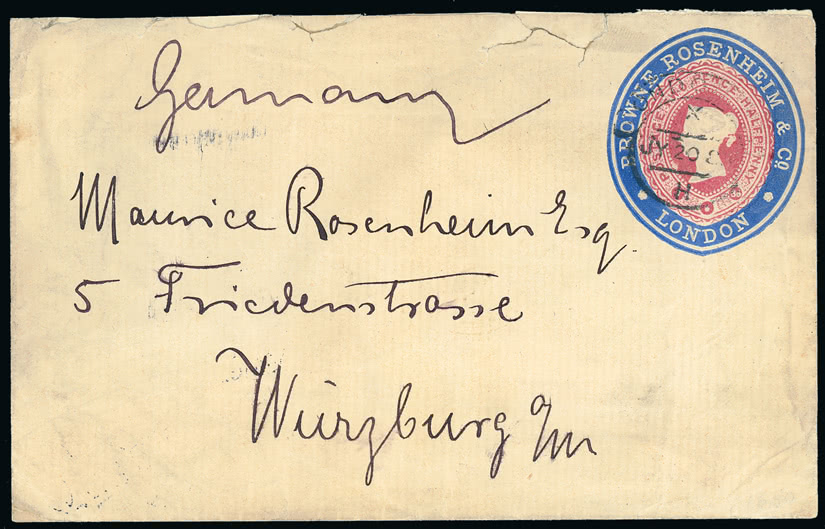 Germany
BROWNE ROSENHEIM & Co.
LONDON
POSTAGE TWO PENCE HALFPENNY
JY 20
H
Maurice Rosenheim Esq.
5 Friedenstrasse
Würzburg